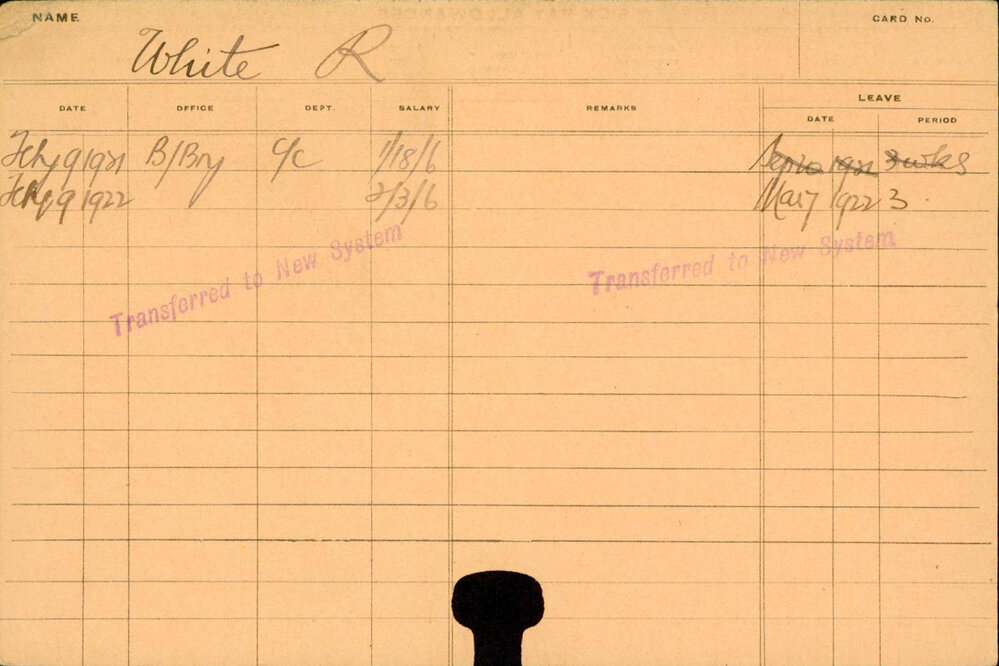 NAME
CARD No.
White R
DATE OFFICE DEPT. SALARY REMARKS LEAVE
DATE PERIOD
Feby 9 1921 B/Bry C/c 1/18/6 Sep 10 1921 3 wks
Feby 9 1922 2/3/6 Mar 7 1922 3
Transferred to New System
Transferred to New System